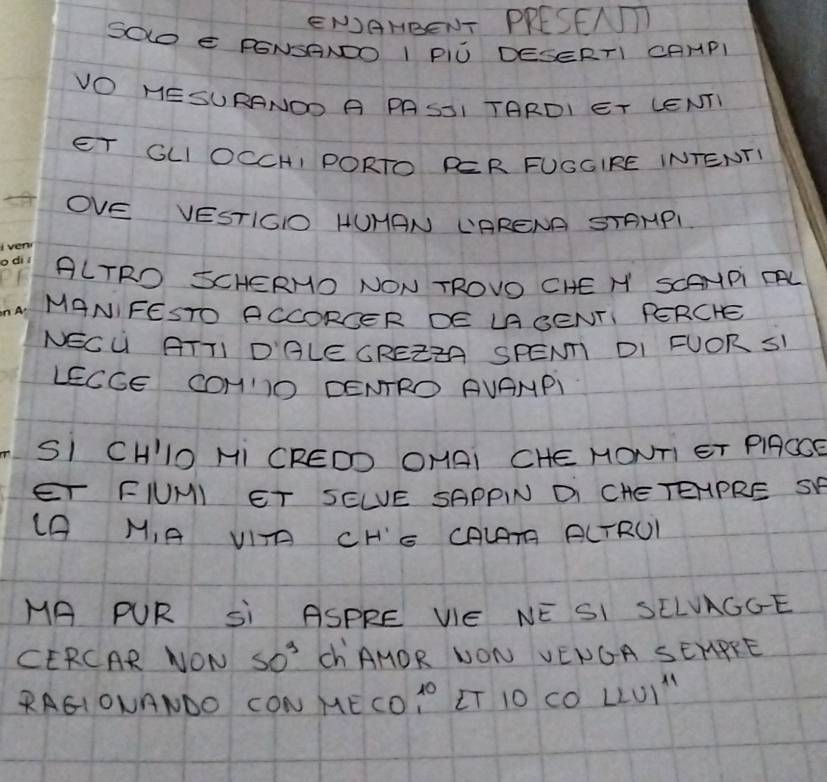 ENJAMBENT PRESENTI
SOLO E PENSANDO I PIÙ DESERTI CAMPI
VO MESURANDO A PASSI TARDI ET LENTI
ET GLI OCCHI PORTO PER FUGGIRE INTENTI
OVE VESTIGIO HUMAN L'ARENA STAMPI.
ALTRO SCHERMO NON TROVO CHE M' SCAMPI DAL
MANIFESTO ACCORGER DE LA GENTI PERCHE
NEGLI ATTI D'ALEGREZZA SPENTI DI FUOR SI
LEGGE COM'IO DENTRO AVAMPI
SÌ CH'IO MI CREDO OMAI CHE MONTI ET PIAGGE
ET FIUMI ET SELVE SAPPIN DI CHE TEMPRE
LA MIA VITA CH'E CALATA ALTRUI
MA PUR SÌ ASPRE VIE NE SI SELVAGGE
CERCAR NON SO⁹ CH'AMOR NON VENGA SEMPRE
RAGIONANDO CON MECO,¹⁰ ET IO CO LLUI¹¹